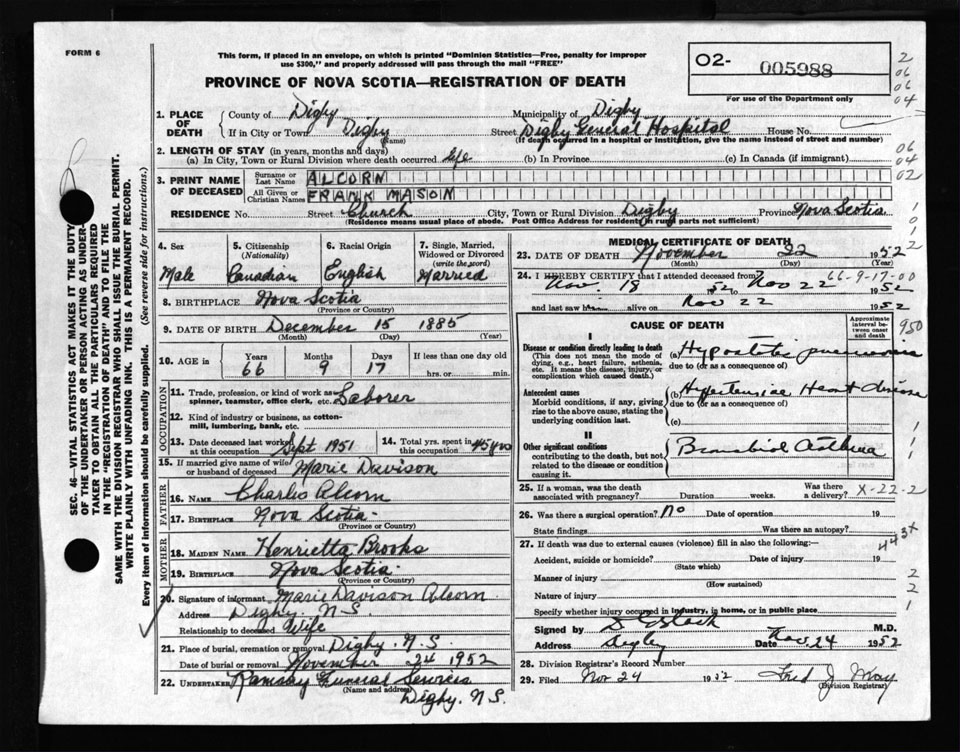 FORM 6
This form, if placed in an envelope, on which is printed "Dominion Statistics—Free, penalty for improper
use $300," and properly addressed will pass through the mail "FREE"
PROVINCE OF NOVA SCOTIA—REGISTRATION OF DEATH
02- 005988
For use of the Department only
2
06
06
04
1. PLACE OF DEATH
County of Digby Municipality of Digby
If in City or Town Digby Street Digby General Hospital House No.
(Name) (If death occurred in a hospital or institution, give the name instead of street and number)
2. LENGTH OF STAY (in years, months and days)
(a) In City, Town or Rural Division where death occurred life (b) In Province (c) In Canada (if immigrant)
06
04
02
3. PRINT NAME OF DECEASED
Surname or Last Name ALCORN
All Given or Christian Names FRANK MASON
RESIDENCE No. Street Church City, Town or Rural Division Digby Province Nova Scotia
(Residence means usual place of abode. Post Office Address for residents in rural parts not sufficient)
4. Sex Male
5. Citizenship (Nationality) Canadian
6. Racial Origin English
7. Single, Married, Widowed or Divorced (write the word) Married
8. BIRTHPLACE Nova Scotia
(Province or Country)
9. DATE OF BIRTH December 15 1885
(Month) (Day) (Year)
10. AGE in Years 66 Months 9 Days 17 If less than one day old hrs. or min.
OCCUPATION
11. Trade, profession, or kind of work as spinner, teamster, office clerk, etc. Laborer
12. Kind of industry or business, as cotton-mill, lumbering, bank, etc.
13. Date deceased last worked at this occupation Sept 1951
14. Total yrs. spent in this occupation 45 yrs
15. If married give name of wife or husband of deceased Marie Davison
FATHER
16. NAME Charles Alcorn
17. BIRTHPLACE Nova Scotia
(Province or Country)
MOTHER
18. MAIDEN NAME Henrietta Brooks
19. BIRTHPLACE Nova Scotia
(Province or Country)
20. Signature of informant Marie Davison Alcorn
Address Digby. N.S.
Relationship to deceased Wife
21. Place of burial, cremation or removal Digby. N.S.
Date of burial or removal November 24 1952
22. UNDERTAKER Ramsay Funeral Services
(Name and address)
Digby. N.S.
MEDICAL CERTIFICATE OF DEATH
23. DATE OF DEATH November 22 1952
(Month) (Day) (Year)
24. I HEREBY CERTIFY that I attended deceased from 66-9-17-00
Nov 18 1952 to Nov 22 1952
and last saw him alive on Nov 22 1952
CAUSE OF DEATH
Approximate interval between onset and death
950
I
Disease or condition directly leading to death (a) Hypostatic pneumonia
(This does not mean the mode of dying, e.g., heart failure, asthenia, etc. It means the disease, injury, or complication which caused death.)
due to (or as a consequence of)
Antecedent causes (b) Hypertensive Heart disease
Morbid conditions, if any, giving rise to the above cause, stating the underlying condition last.
due to (or as a consequence of)
(c)
II
Other significant conditions contributing to the death, but not related to the disease or condition causing it. Bronchial Asthma
25. If a woman, was the death associated with pregnancy? Duration weeks. Was there a delivery?
X-22-2
26. Was there a surgical operation? no Date of operation 19
State findings Was there an autopsy?
443x
27. If death was due to external causes (violence) fill in also the following:—
Accident, suicide or homicide? Date of injury 19
(State which)
Manner of injury
(How sustained)
Nature of injury
Specify whether injury occurred in industry, in home, or in public place
Signed by M.D.
Address Digby Date Nov. 24 1952
28. Division Registrar's Record Number
29. Filed Nov 24 1952 Fred J.
(Division Registrar)
SEC. 46—VITAL STATISTICS ACT MAKES IT THE DUTY
OF THE UNDERTAKER OR PERSON ACTING AS UNDER-
TAKER TO OBTAIN ALL THE PARTICULARS REQUIRED
IN THE "REGISTRATION OF DEATH" AND TO FILE THE
SAME WITH THE DIVISION REGISTRAR WHO SHALL ISSUE THE BURIAL PERMIT.
WRITE PLAINLY WITH UNFADING INK. THIS IS A PERMANENT RECORD.
Every item of information should be carefully supplied. (See reverse side for instructions.)